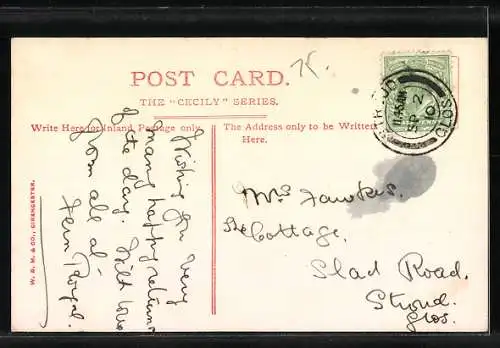 POST CARD.
THE "CECILY" SERIES.
Write Here for Inland Postage only.
The Address only to be Written
Here.
Wishing you very
many happy returns
of the day. With love
from all at
Fern Royal.
Mrs Fawkes.
Cottage,
Slad Road.
Stroud.
Glos.
STROUD
11.45AM
SP 2
10
GLOS
W. D. M. & CO., CIRENCESTER.